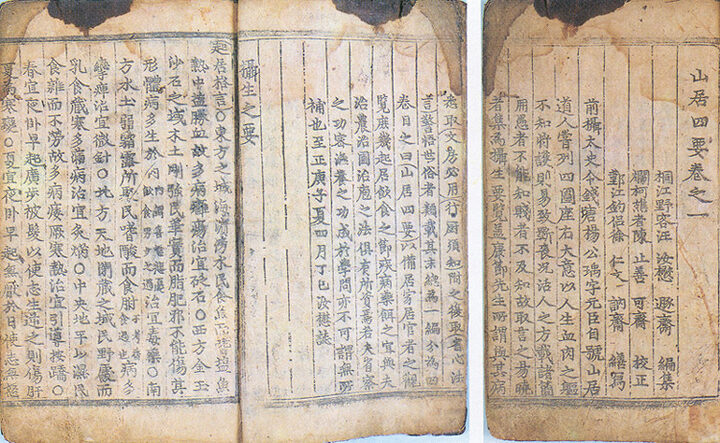 山居四要卷之一
桐江野客汪 汝懋 遯齋 編集
爛柯樵者陳 止善 可齋 校正
鄞江釣侶徐 仁文 訥齋 繕寫
前攝太史令錢塘楊公瑀字元臣自號山居
道人嘗列四圖座右大意以人生血肉之軀
不知將護則易致斷喪况活人之方載諸簡
用愚者不能知賤者不及知故取言之易曉
者集為攝生要覽蓋康節先生所謂與其病
悉取文房必用行厨須知附之後取省心法
言警悟世俗者類載其末總為一編分為四
卷目之曰山居四要以備居家居官者之觀
覽庶幾起居飲食之節疾病藥餌之宜與夫
治農治圃治庖之法俱有所資焉若夫省察
之功容養之功成於學問亦不可謂無所
補也至正庚子夏四月丁巳汝懋誌
攝生之要
起居格言○東方之域海濱傍水民食魚而嗜鹽魚
熱中鹽勝血故多病癰瘍治宜砭石○西方金玉
沙石之域水土剛強民華實而脂肥邪不能傷其
形體病多生於內飲食男女之過治宜毒藥○南
方水土弱霧露所聚民嗜酸而食胕病多
攣痺治宜微針○北方天地閉藏之域民野處而
乳食藏寒多滿病治宜灸焫○中央地平以濕民
食雜而不勞故多病痿厥寒熱治宜引導按蹻○
春宜夜卧早起廣步被髮以使志生逆之則傷肝
夏為寒變○夏宜夜卧早起無厭於日使志無怒